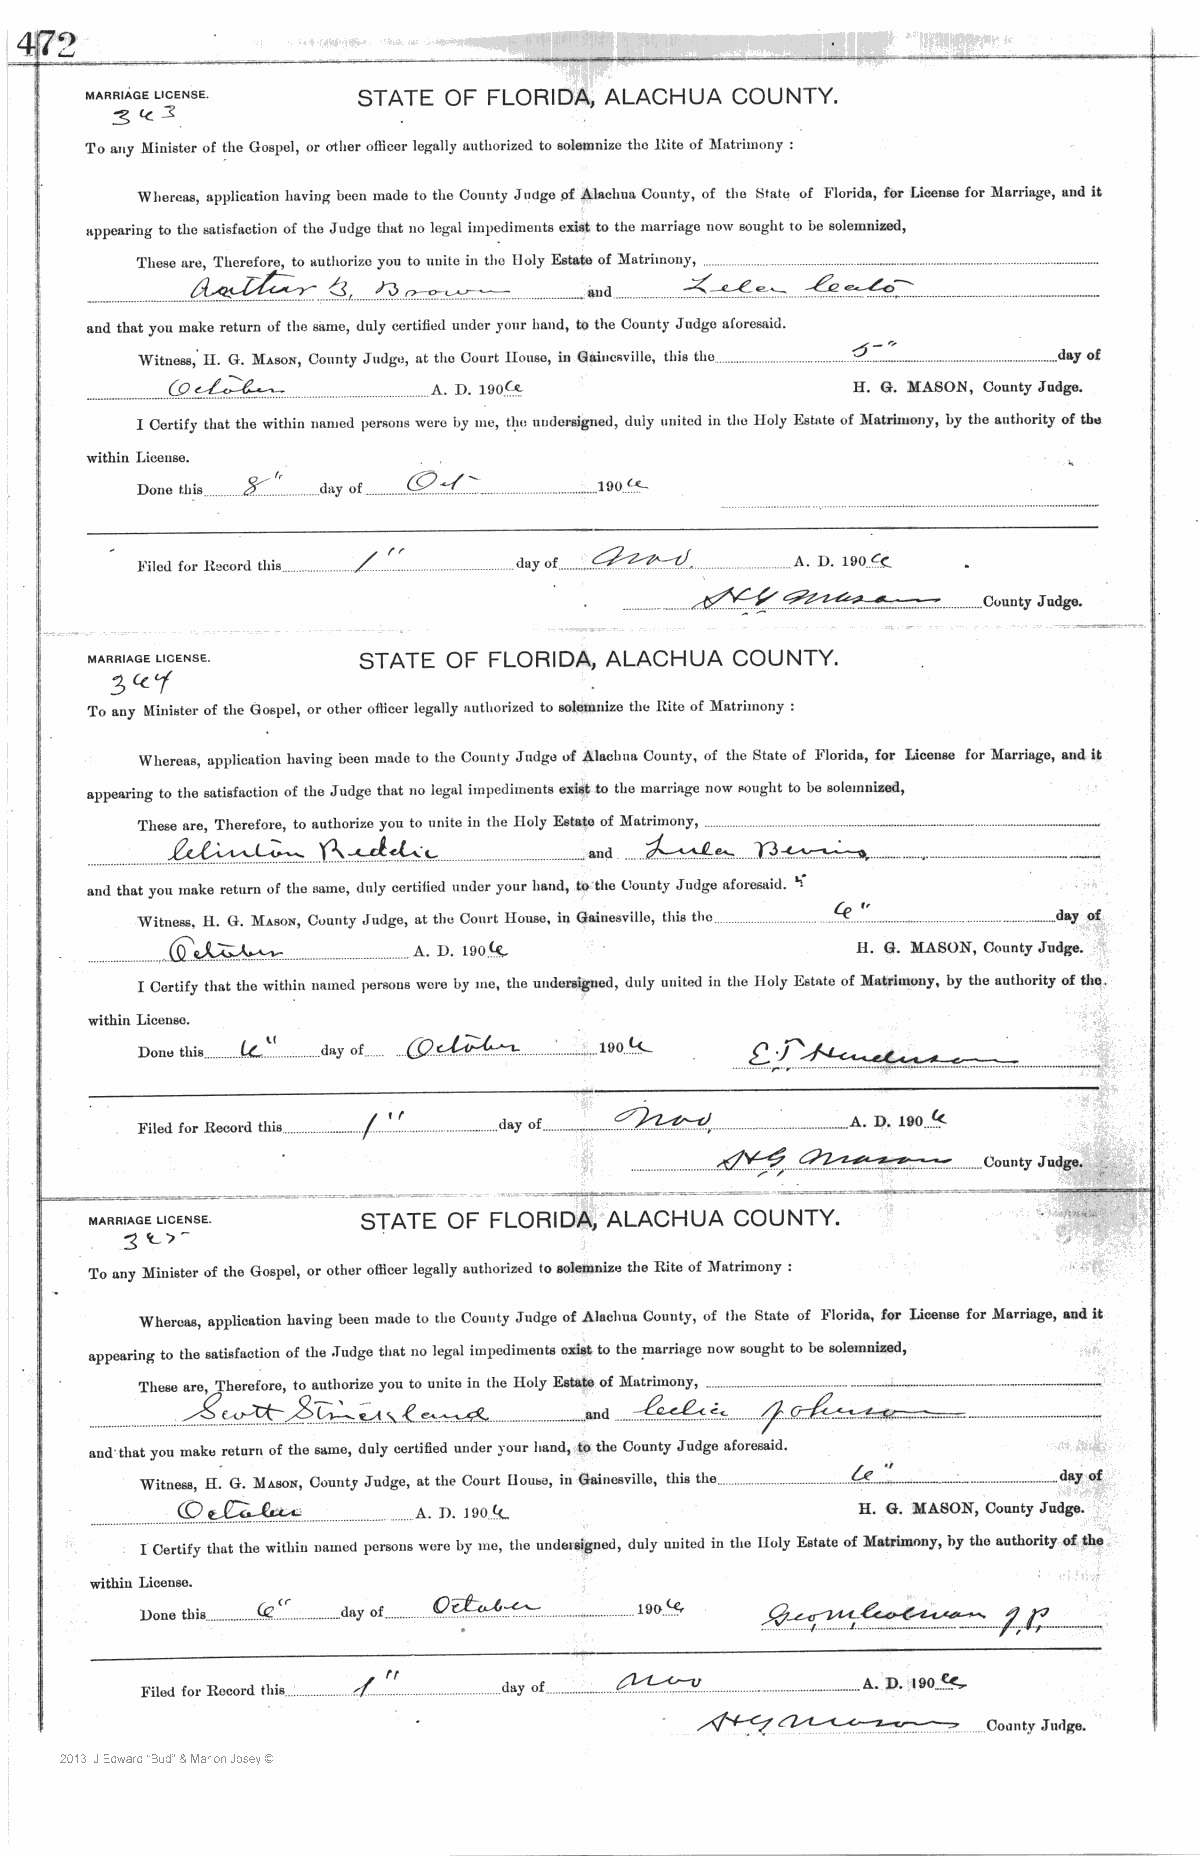 472
MARRIAGE LICENSE.
STATE OF FLORIDA, ALACHUA COUNTY.
363
To any Minister of the Gospel, or other officer legally authorized to solemnize the Rite of Matrimony :
Whereas, application having been made to the County Judge of Alachua County, of the State of Florida, for License for Marriage, and it
appearing to the satisfaction of the Judge that no legal impediments exist to the marriage now sought to be solemnized,
These are, Therefore, to authorize you to unite in the Holy Estate of Matrimony,
B. Brown and Cato
and that you make return of the same, duly certified under your hand, to the County Judge aforesaid.
Witness, H. G. Mason, County Judge, at the Court House, in Gainesville, this the 5" day of
October A. D. 1906 H. G. MASON, County Judge.
I Certify that the within named persons were by me, the undersigned, duly united in the Holy Estate of Matrimony, by the authority of the
within License.
Done this 8" day of Oct 1906
Filed for Record this 1" day of Nov. A. D. 1906
H G Mason County Judge.
MARRIAGE LICENSE.
STATE OF FLORIDA, ALACHUA COUNTY.
364
To any Minister of the Gospel, or other officer legally authorized to solemnize the Rite of Matrimony :
Whereas, application having been made to the County Judge of Alachua County, of the State of Florida, for License for Marriage, and it
appearing to the satisfaction of the Judge that no legal impediments exist to the marriage now sought to be solemnized,
These are, Therefore, to authorize you to unite in the Holy Estate of Matrimony,
Clinton Reddic and Lula Bevins,
and that you make return of the same, duly certified under your hand, to the County Judge aforesaid.
Witness, H. G. Mason, County Judge, at the Court House, in Gainesville, this the 6" day of
October A. D. 1906 H. G. MASON, County Judge.
I Certify that the within named persons were by me, the undersigned, duly united in the Holy Estate of Matrimony, by the authority of the
within License.
Done this 6" day of October 1906 E. T. Henderson
Filed for Record this 1" day of Nov, A. D. 1906
H G Mason County Judge.
MARRIAGE LICENSE.
STATE OF FLORIDA, ALACHUA COUNTY.
365
To any Minister of the Gospel, or other officer legally authorized to solemnize the Rite of Matrimony :
Whereas, application having been made to the County Judge of Alachua County, of the State of Florida, for License for Marriage, and it
appearing to the satisfaction of the Judge that no legal impediments exist to the marriage now sought to be solemnized,
These are, Therefore, to authorize you to unite in the Holy Estate of Matrimony,
Scott Strickland and Celia Johnson
and that you make return of the same, duly certified under your hand, to the County Judge aforesaid.
Witness, H. G. Mason, County Judge, at the Court House, in Gainesville, this the 6" day of
October A. D. 1906 H. G. MASON, County Judge.
I Certify that the within named persons were by me, the undersigned, duly united in the Holy Estate of Matrimony, by the authority of the
within License.
Done this 6" day of October 1906, Geo, M, Coleman J, P,
Filed for Record this 1" day of Nov A. D. 1906,
H G Mason County Judge.
2013 J Edward "Bud" & Marion Josey ©